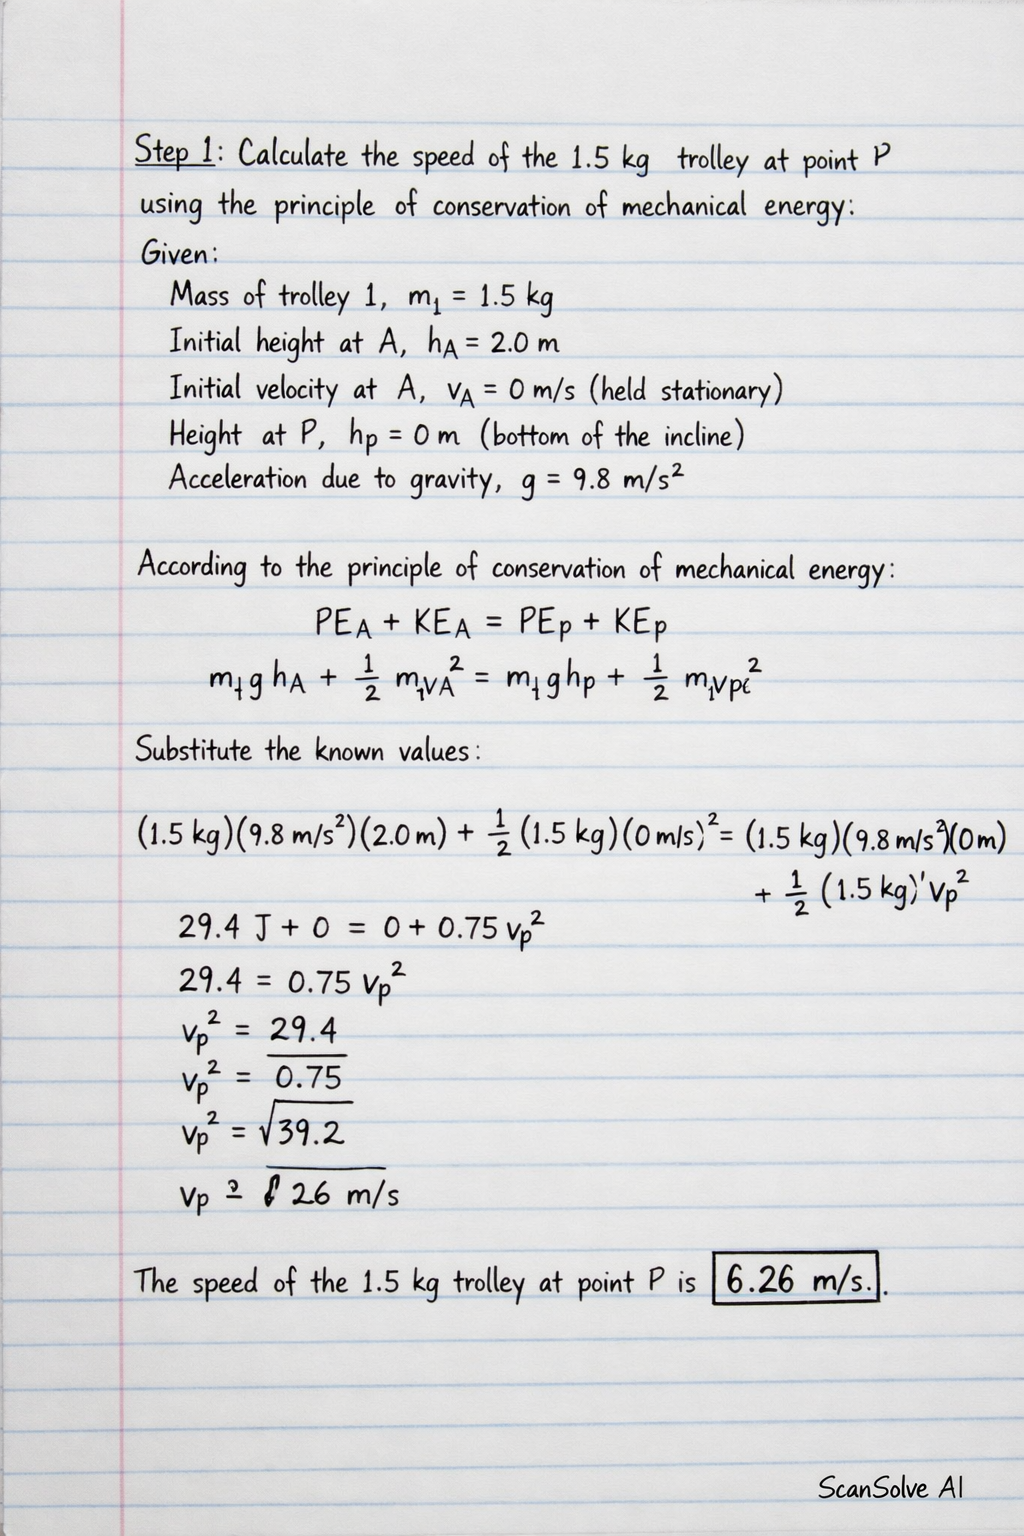 Step 1: Calculate the speed of the 1.5 kg trolley at point P
using the principle of conservation of mechanical energy:
Given:
Mass of trolley 1, m₁ = 1.5 kg
Initial height at A, hA = 2.0 m
Initial velocity at A, vA = 0 m/s (held stationary)
Height at P, hp = 0 m (bottom of the incline)
Acceleration due to gravity, g = 9.8 m/s²
According to the principle of conservation of mechanical energy:
PEA + KEA = PEp + KEp
m₁ghA + 1/2 m₁vA² = m₁ghp + 1/2 m₁vp²
Substitute the known values:
(1.5 kg)(9.8 m/s²)(2.0 m) + 1/2 (1.5 kg)(0 m/s)² = (1.5 kg)(9.8 m/s²)(0m)
+ 1/2 (1.5 kg)'vp²
29.4 J + 0 = 0 + 0.75 vp²
29.4 = 0.75 vp²
vp² = 29.4
vp² = 0.75
vp² = √39.2
vp 26 m/s
The speed of the 1.5 kg trolley at point P is 6.26 m/s..
ScanSolve AI